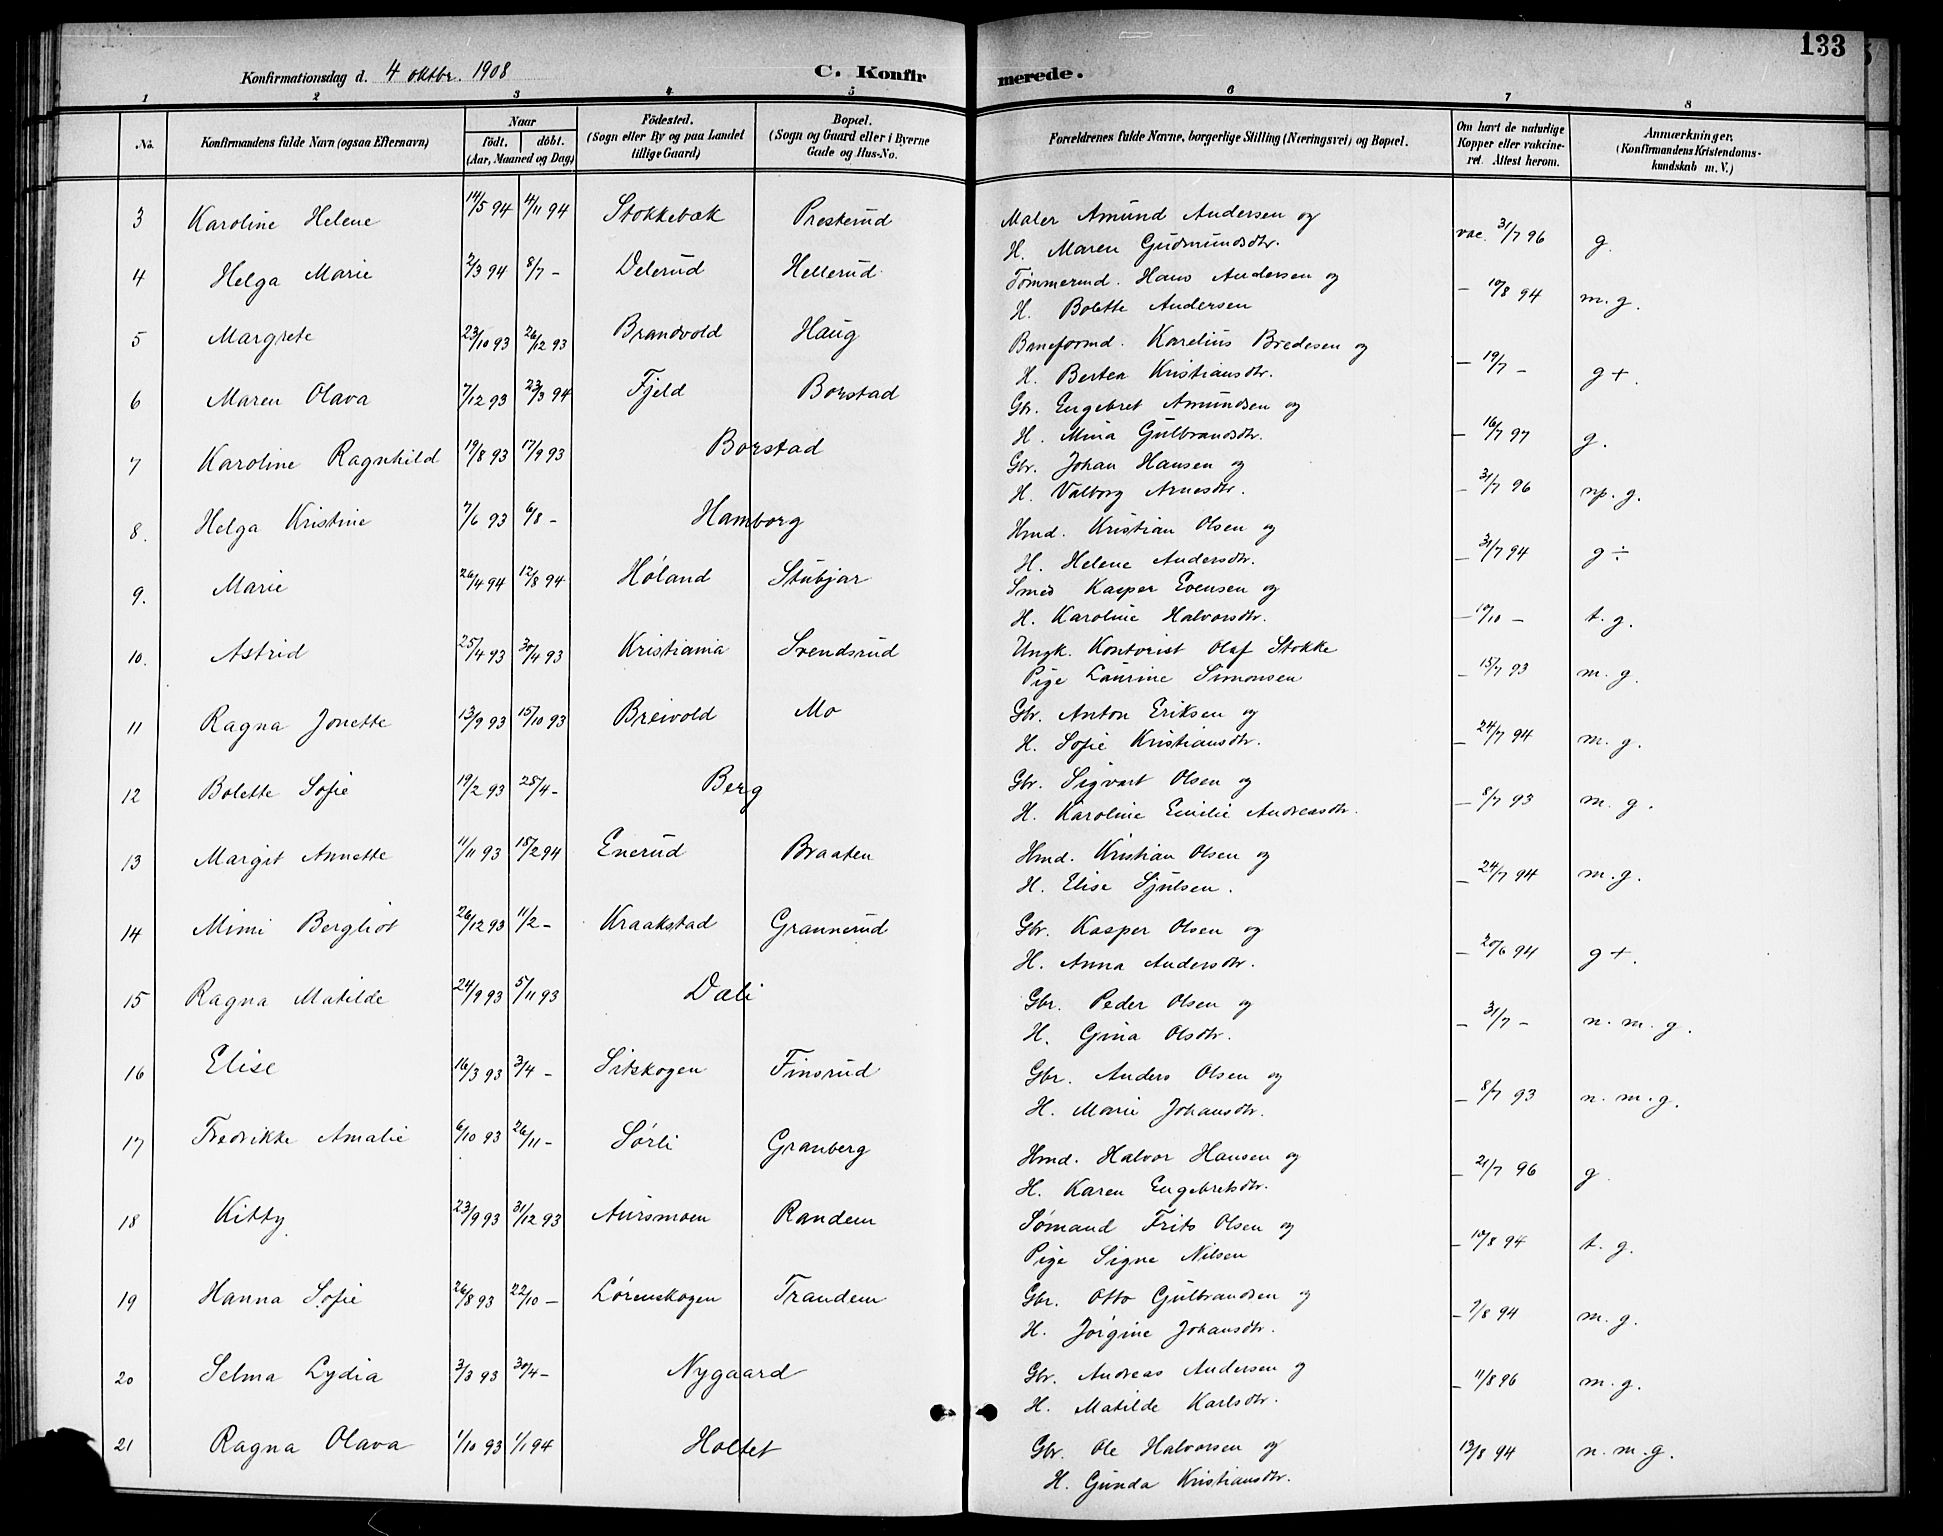 133
Konfirmationsdag d. 4 oktbr. 1908 C. Konfirmerede.
1 2 3 4 5 6 7 8
No. Konfirmandens fulde Navn (ogsaa Efternavn) Naar født. døbt. (Aar, Maaned og Dag) Fødested. (Sogn eller By og paa Landet tillige Gaard) Bopæl. (Sogn og Gaard eller i Byerne Gade og Hus-No. Forældrenes fulde Navne, borgerlige Stilling (Næringsvei) og Bopæl. Om havt de naturlige Kopper eller vakcineret. Attest herom. Anmærkninger. (Konfirmandens Kristendomskundskab m. V.)
3 Karoline Helene 14/5 94 4/11 94 Stokkebæk Presterud Maler Amund Andersen og
H. Maren Gudmundsdtr. vac. 31/7 96 g.
4 Helga Marie 2/3 94 8/7 – Delerud Hellerud Tømmermd. Hans Andersen og
H. Bolette Andersen – 10/8 94 m. g.
5 Margrete 23/10 93 26/12 93 Brandvold Haug Baneformd. Karelius Bredesen og
H. Bertea Kristiansdtr. – 19/7 – g +.
6 Maren Olava 7/12 93 23/3 94 Fjeld Borstad Gbr. Engebret Amundsen og
H. Mina Gulbrandsdtr. – 16/7 97 g.
7 Karoline Ragnhild 19/8 93 17/9 93 Borstad Gbr. Johan Hansen og
H. Valborg Arnesdtr. – 31/7 96 np. g.
8. Helga Kristine 7/6 93 6/8 – Hamborg Hmd. Kristian Olsen og
H. Helene Andersdtr. – 31/7 94 g ÷
9. Marie 26/4 94 12/8 94 Høland Stubjar Smed Kasper Evensen og
H. Karoline Halvorsdtr. – 10/10 – t. g.
10. Astrid 25/4 93 30/4 93 Kristiania Svendsrud Ungk. Kontorist Olaf Stokke
Pige Laurine Simonsen – 15/7 93 m. g.
11 Ragna Jonette 13/9 93 15/10 93 Breivold Mo Gbr. Anton Eriksen og
H. Sofie Kristiansdtr. – 24/7 94 m. g.
12 Bolette Sofie 19/2 93 28/4 – Berg Gbr. Sigvart Olsen og
H. Karoline Emilie Andreasdtr. – 8/7 93 m. g.
13 Margit Annette 11/11 93 18/2 94 Enerud Braaten Hmd. Kristian Olsen og
H. Elise Sjulsen. – 24/7 94 m. g.
14 Mimi Bergliot 26/12 93 11/2 – Kraakstad Grannerud Gbr. Kasper Olsen og
H. Anna Andersdtr. – 20/6 94 g +.
15 Ragna Matilde 24/9 93 5/11 93 Dali Gbr. Peder Olsen og
H. Gina Olsdtr. – 31/7 – n. m. g.
16 Elise 16/3 93 3/4 – Sitskogen Finsrud Gbr. Anders Olsen og
H. Marie Johansdtr. – 8/7 93 n. m. g.
17 Fredrikke Amalie 6/10 93 26/11 – Sørli Granberg Hmd. Halvor Hansen og
H. Karen Engebretsdtr. – 21/7 96 g.
18 Kitty 23/9 93 31/12 93 Aursmoen Randem Sømand Frits Olsen og
Pige Signe Nilsen – 10/8 94 t. g.
19 Hanna Sofie 26/8 93 22/10 – Lørenskogen Trandem Gbr. Otto Gulbrandsen og
H. Jørgine Johansdtr. – 7/8 94 m. g.
20 Selma Lydia 3/3 93 30/4 – Nygaard Gbr. Andreas Andersen og
H. Matilde Karlsdtr. – 11/8 96 m. g.
21 Ragna Olava 1/10 93 1/1 94 Holtet Gbr. Ole Halvorsen og
H. Gunda Kristiansdtr. 13/8 94 n. m. g.